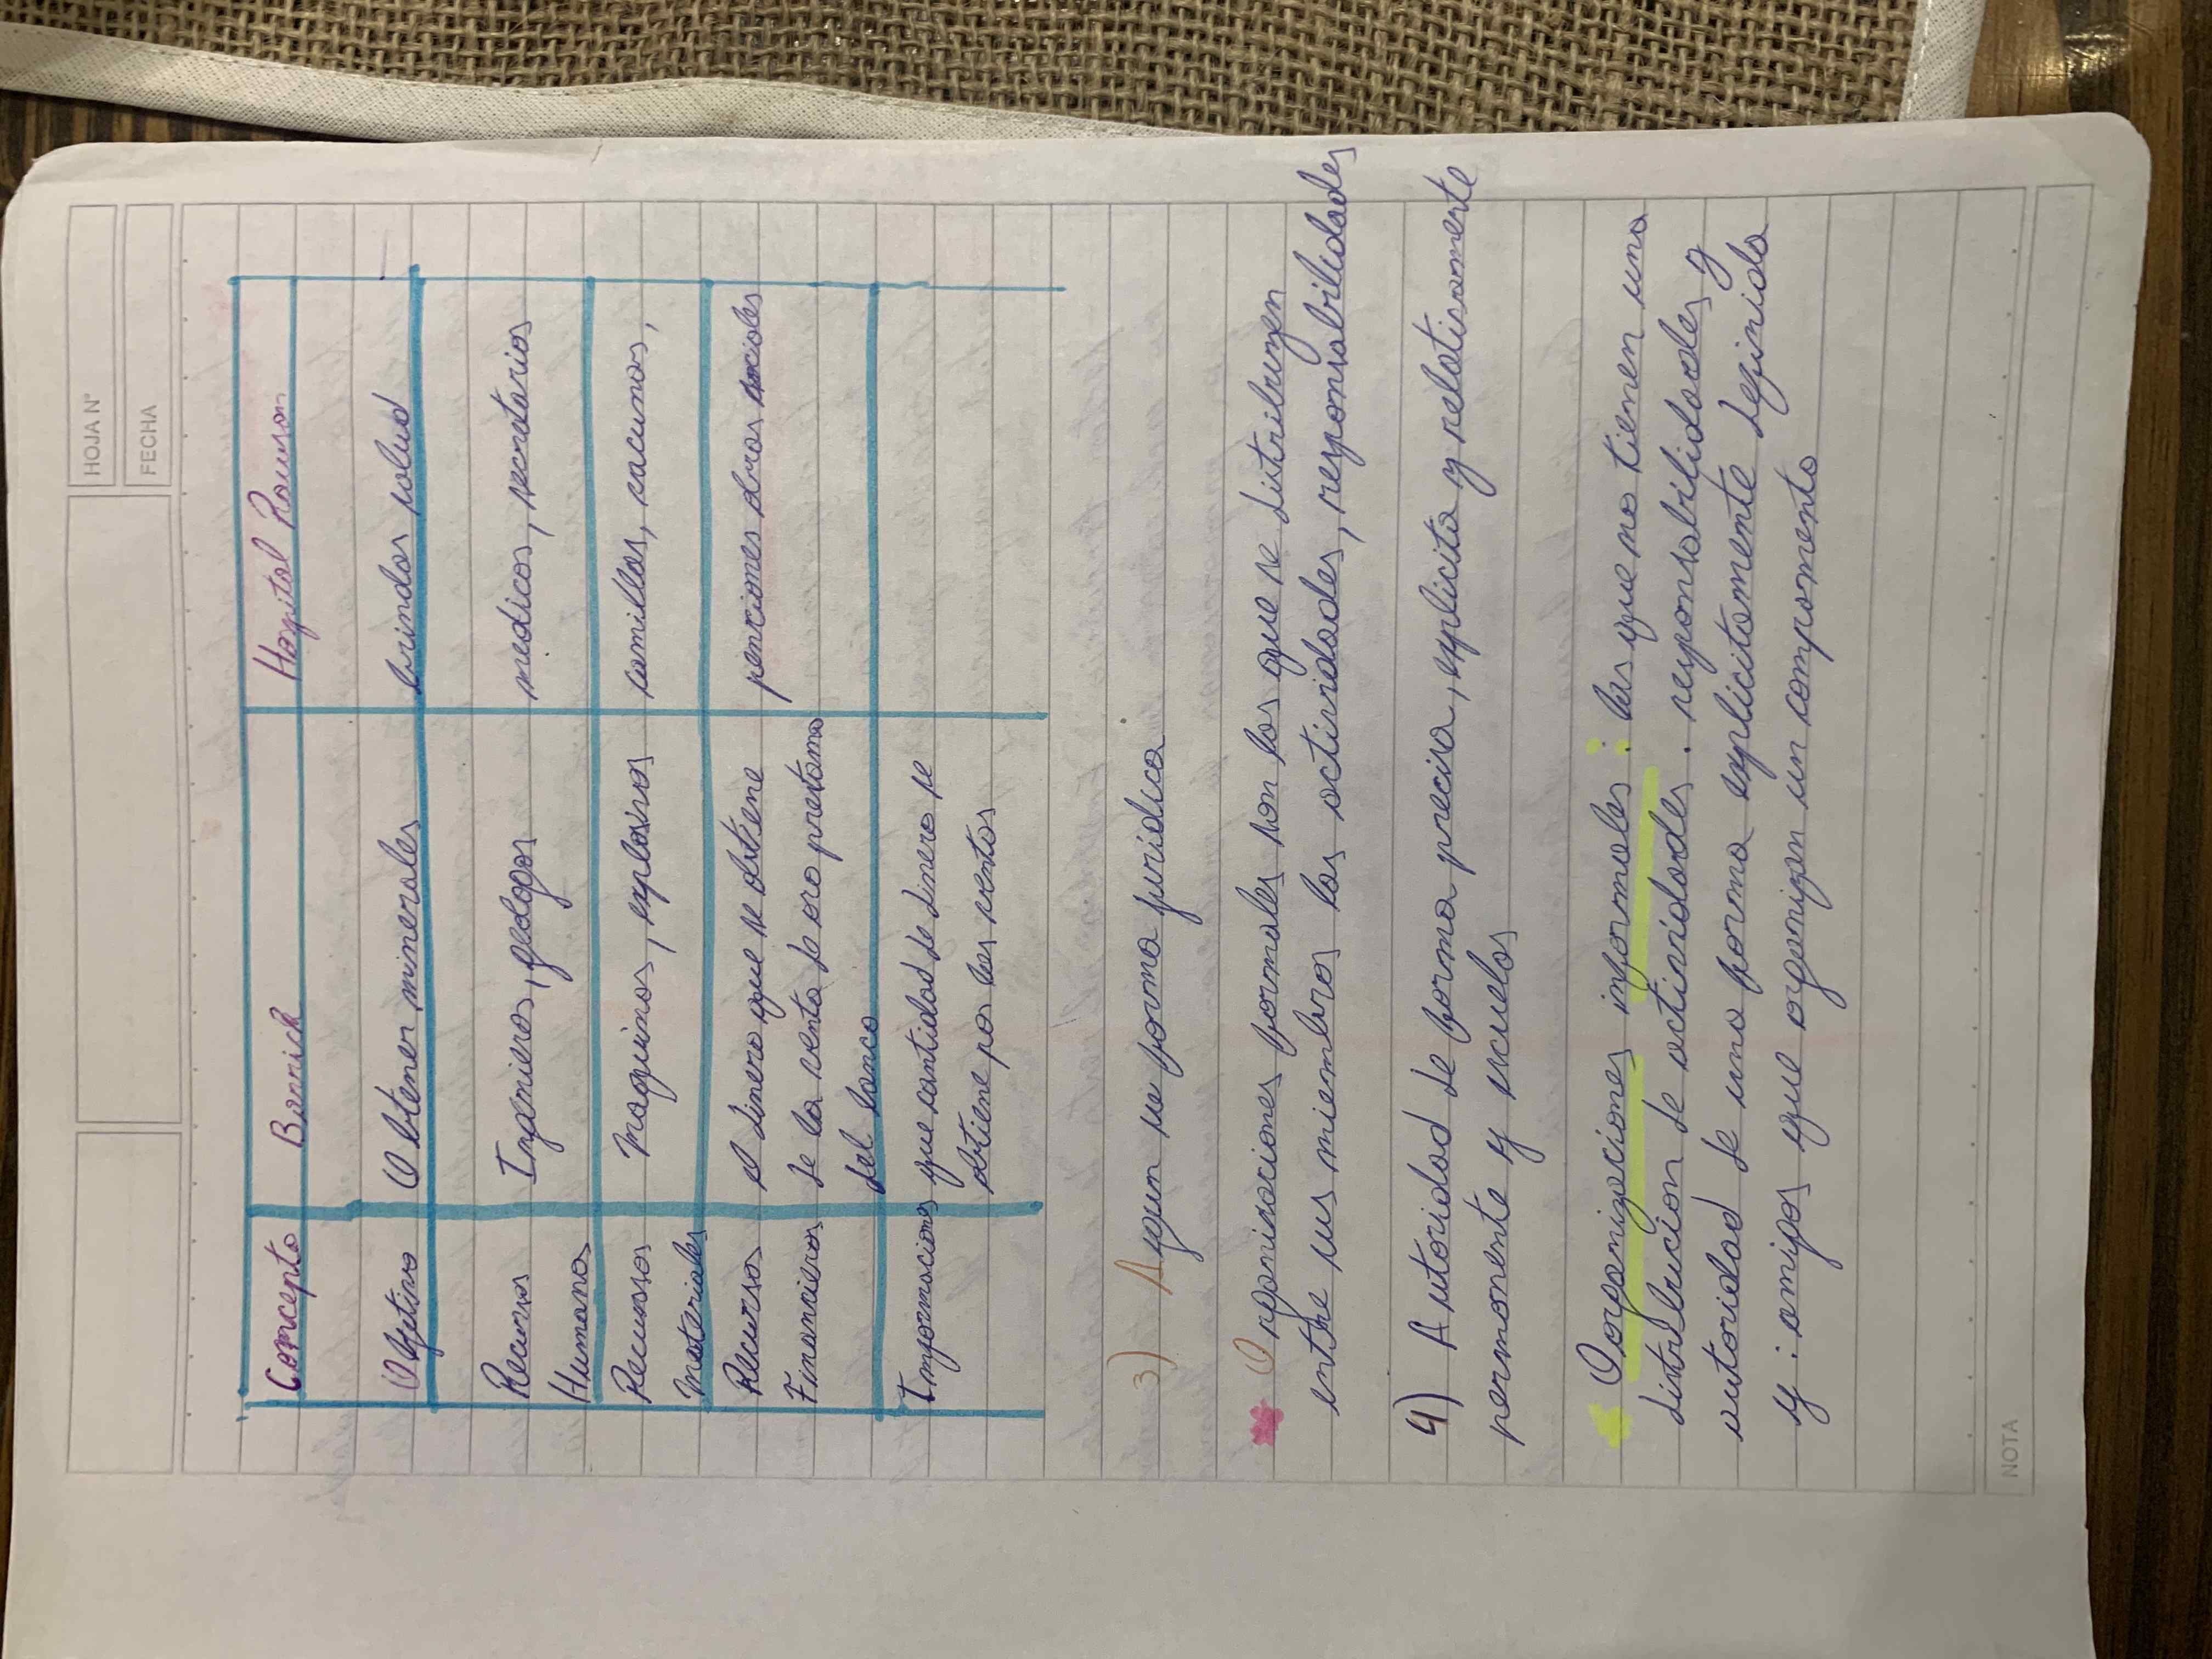 HOJA N°
FECHA
Concepto Barrick Hospital Rawson
Objetivo Obtener minerales brindar salud
Recursos Ingenieros, geologos medicos, secretarios
Humanos
Recursos Maquinas, explosivos camillas, vacunas,
Materiales
Recursos el dinero que se obtiene penciones obras sociales
Financieros de la venta de oro prestamo
del banco
Informaciones que cantidad de dinero se
obtiene por las ventas
3) Agun su forma juridica
Organisaciones formales son las que se distribuyen
entre sus miembros las actividades, responsabilidades
4) Autoridad de forma precisa, explicita y relativamente
permanente y escuelas
Organizaciones informales: las que no tienen una
distribucion de actividades. responsabilidades y
autoridad de una forma explicitamente definida
y: amigos que organizan un campamento
NOTA